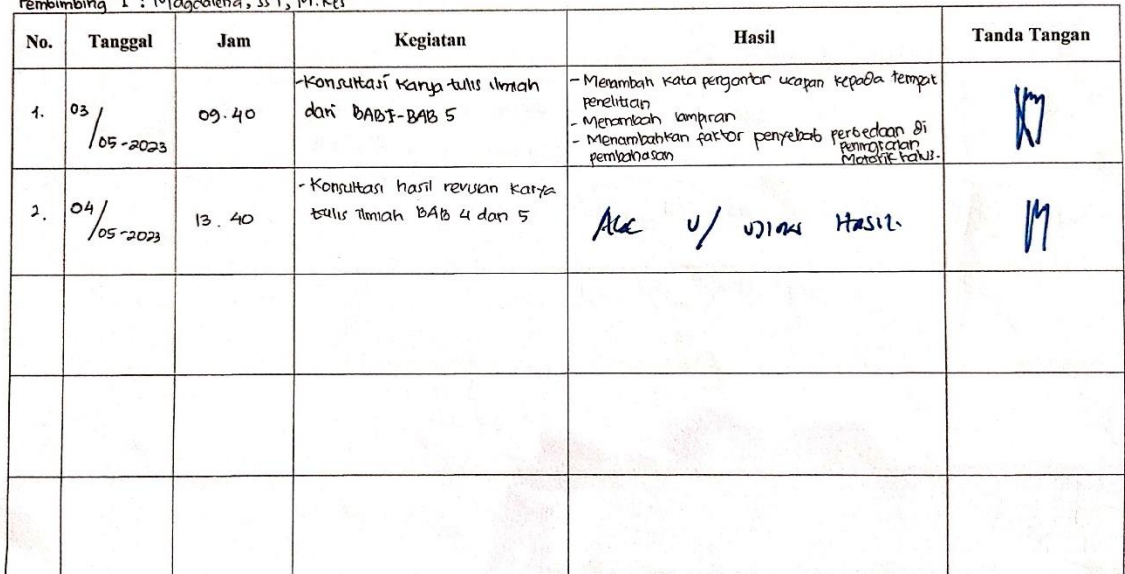 Pembimbing 1 : Magdalena, SST, M.Kes
No. Tanggal Jam Kegiatan Hasil Tanda Tangan
1. 03/05-2023 09.40
-Konsultasi Karya tulis ilmiah
dari BAB I-BAB 5
- Menambah kata pengantar ucapan kepada tempat
penelitian
- Menambah lampiran
- Menambahkan faktor penyebab perbedaan di
peningkatan
pembahasan
Motorik halus.
2. 04/05-2023 13.40
- Konsultasi hasil revisian karya
tulis ilmiah BAB 4 dan 5
Acc u/ Hasil.